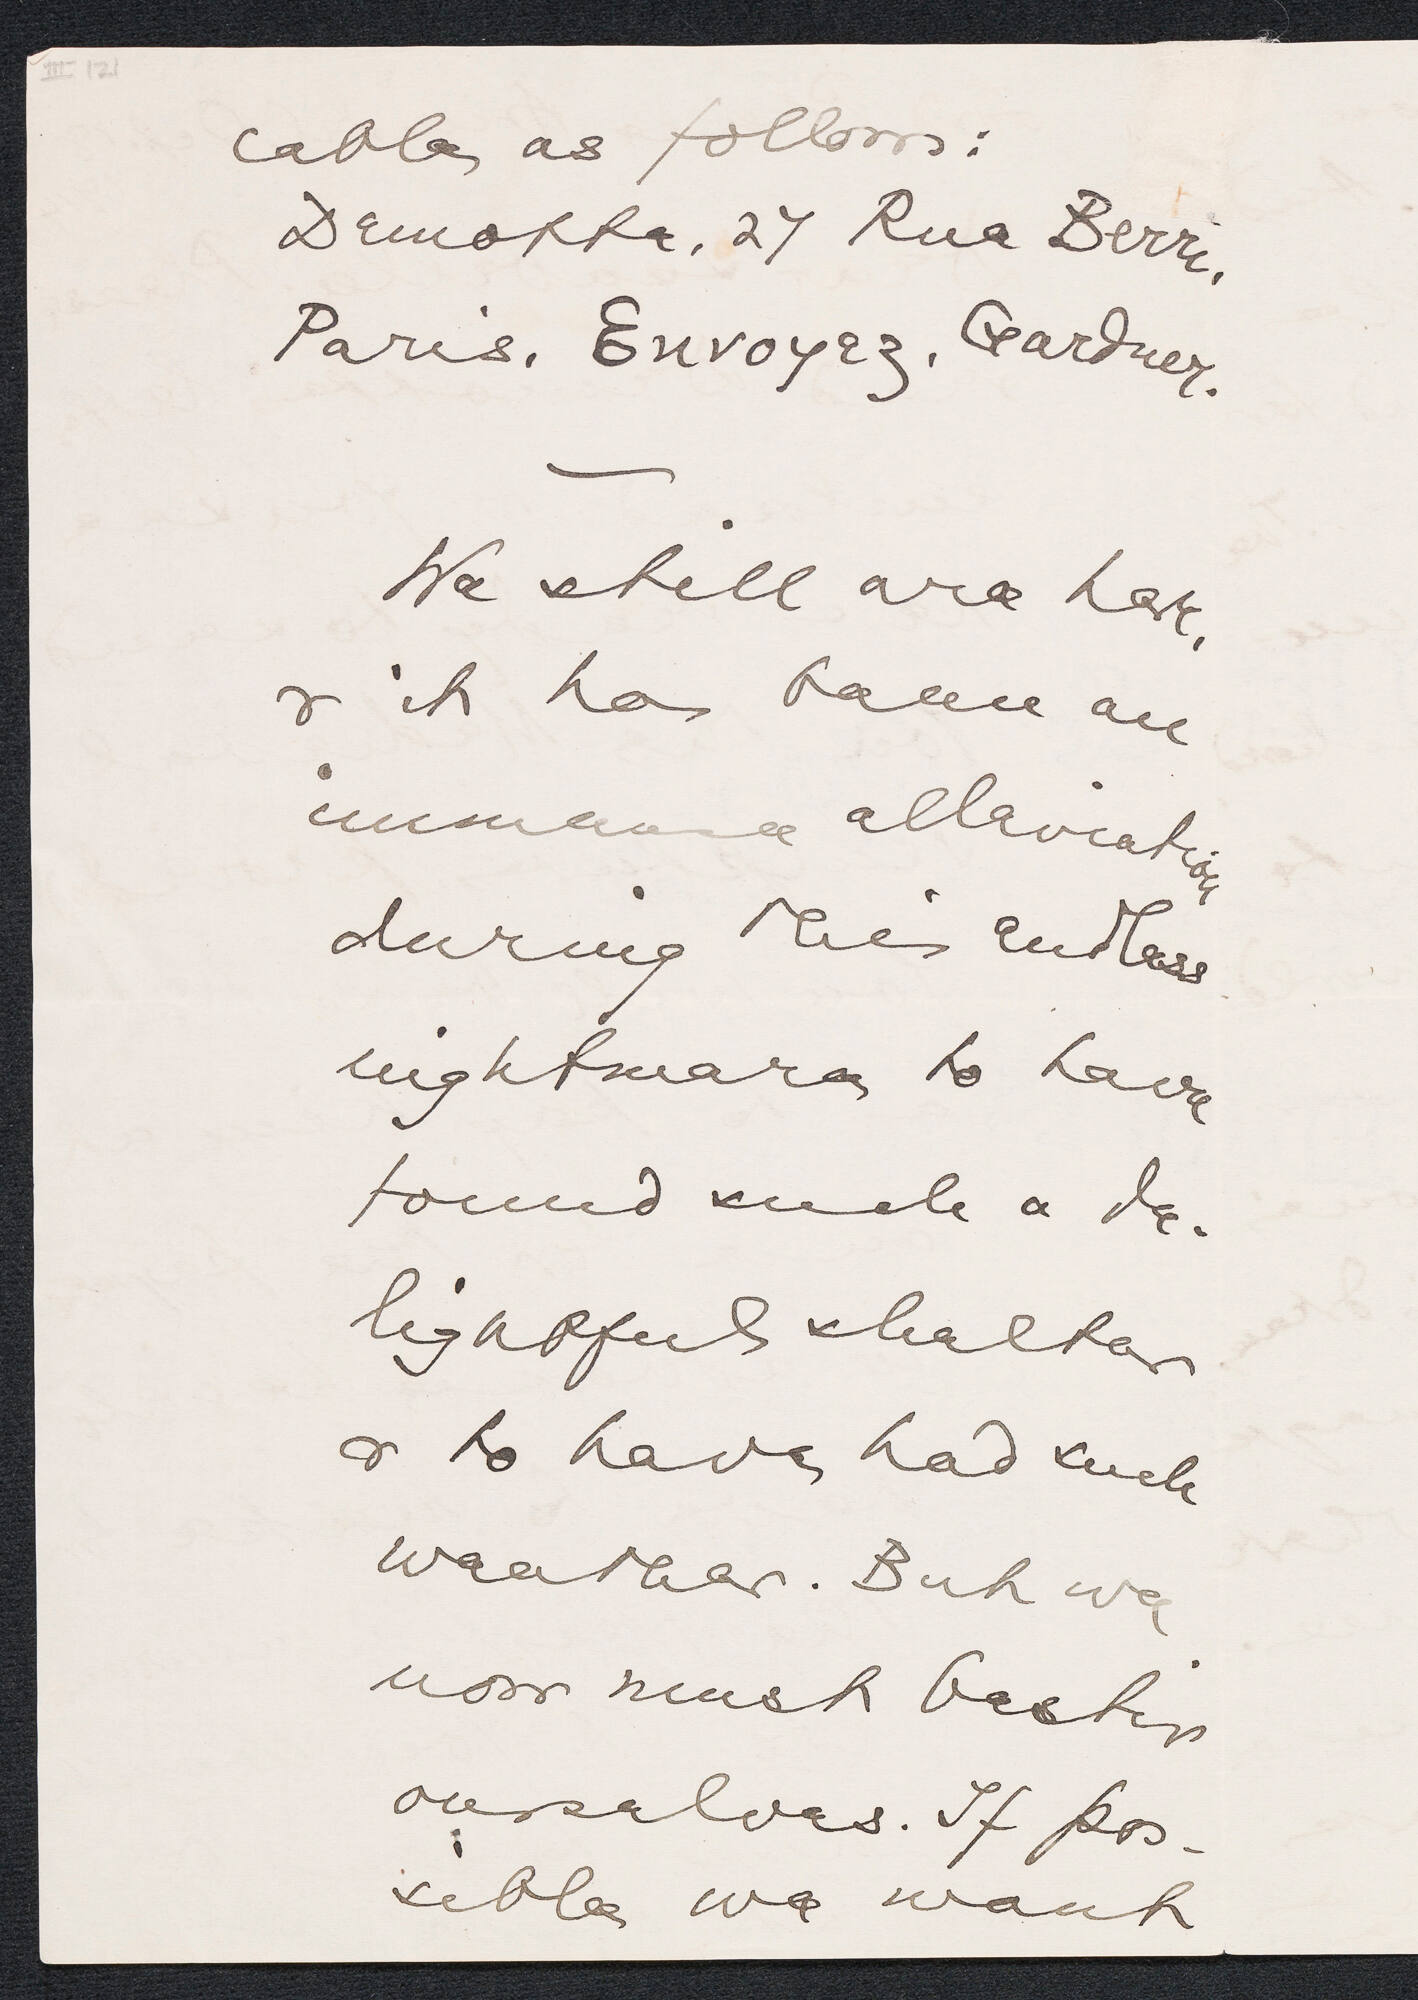 III (2)
cable as follows:
Demotte, 27 Rue Berri,
Paris. Envoyez. Gardner.
We still are here,
& it has been an
immense alleviation
during this endless
nightmare to have
found such a de-
lightful shelter
& to have had such
weather. But we
now must bestir
ourselves. If pos-
sible we want